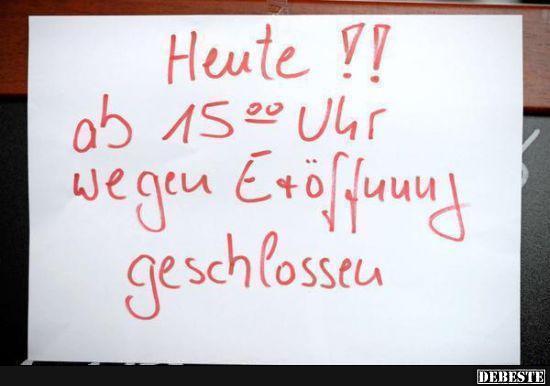 Heute !!
ab 15⁰⁰ Uhr
wegen Eröffnung
geschlossen
DEBESTE